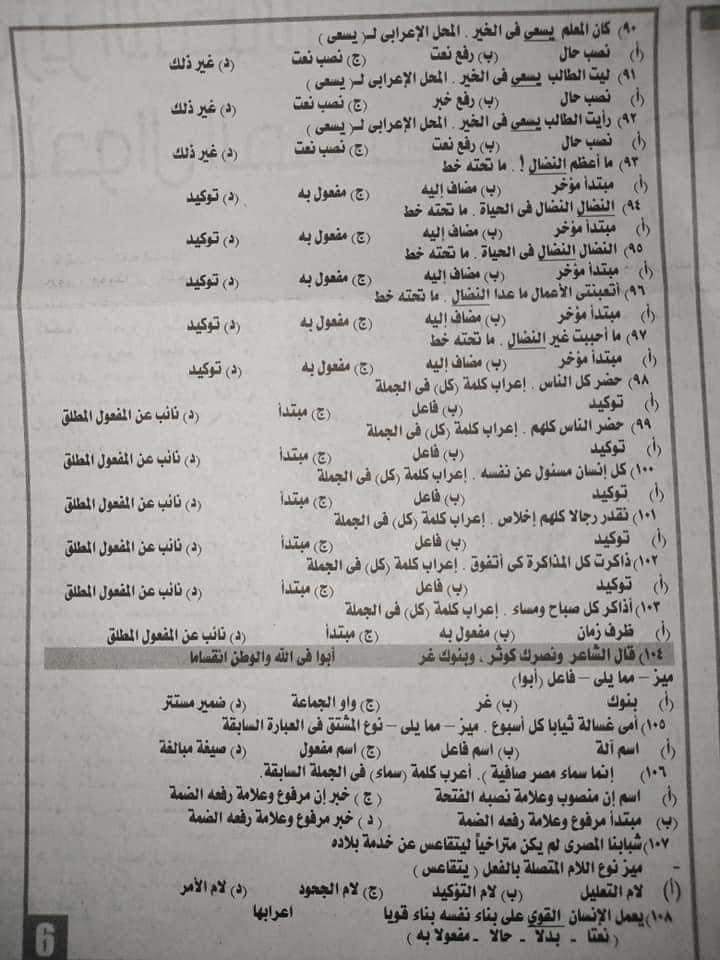 ٩٠) كان المعلم يسعى فى الخير . المحل الإعرابى لـ( يسعى )
(أ) نصب حال (ب) رفع نعت (ج) نصب نعت (د) غير ذلك
٩١) ليت الطالب يسعى فى الخير . المحل الإعرابى لـ( يسعى )
(أ) نصب حال (ب) رفع خبر (ج) نصب نعت (د) غير ذلك
٩٢) رأيت الطالب يسعى فى الخير . المحل الإعرابى لـ( يسعى )
(أ) نصب حال (ب) رفع نعت (ج) نصب نعت (د) غير ذلك
٩٣) ما أعظم النضال ! . ما تحته خط
(أ) مبتدأ مؤخر (ب) مضاف إليه (ج) مفعول به (د) توكيد
٩٤) النضال النضال فى الحياة . ما تحته خط
(أ) مبتدأ مؤخر (ب) مضاف إليه (ج) مفعول به (د) توكيد
٩٥) النضال النضال فى الحياة . ما تحته خط
(أ) مبتدأ مؤخر (ب) مضاف إليه (ج) مفعول به (د) توكيد
٩٦) أتعبنتى الأعمال ما عدا النضال . ما تحته خط
(أ) مبتدأ مؤخر (ب) مضاف إليه (ج) مفعول به (د) توكيد
٩٧) ما أحببت غير النضال . ما تحته خط
(أ) مبتدأ مؤخر (ب) مضاف إليه (ج) مفعول به (د) توكيد
٩٨) حضر كل الناس . إعراب كلمة (كل) فى الجملة
(أ) توكيد (ب) فاعل (ج) مبتدأ (د) نائب عن المفعول المطلق
٩٩) حضر الناس كلهم . إعراب كلمة (كل) فى الجملة
(أ) توكيد (ب) فاعل (ج) مبتدأ (د) نائب عن المفعول المطلق
١٠٠) كل إنسان مسئول عن نفسه . إعراب كلمة (كل) فى الجملة
(أ) توكيد (ب) فاعل (ج) مبتدأ (د) نائب عن المفعول المطلق
١٠١) نقدر رجالا كلهم إخلاص . إعراب كلمة (كل) فى الجملة
(أ) توكيد (ب) فاعل (ج) مبتدأ (د) نائب عن المفعول المطلق
١٠٢) ذاكرت كل المذاكرة كى أتفوق . إعراب كلمة (كل) فى الجملة
(أ) توكيد (ب) فاعل (ج) مبتدأ (د) نائب عن المفعول المطلق
١٠٣) أذاكر كل صباح ومساء . إعراب كلمة (كل) فى الجملة
(أ) ظرف زمان (ب) مفعول به (ج) مبتدأ (د) نائب عن المفعول المطلق
١٠٤) قال الشاعر ونصرك كوثر ، وبنوك غر أبوا فى الله والوطن انقساما
ميز – مما يلى – فاعل (أبوا)
(أ) بنوك (ب) غر (ج) واو الجماعة (د) ضمير مستتر
١٠٥) أمى غسالة ثيابا كل أسبوع . ميز – مما يلى – نوع المشتق فى العبارة السابقة
(أ) اسم آلة (ب) اسم فاعل (ج) اسم مفعول (د) صيغة مبالغة
١٠٦) إنما سماء مصر صافية ). أعرب كلمة (سماء) فى الجملة السابقة.
(أ) اسم إن منصوب وعلامة نصبه الفتحة (ج ) خبر إن مرفوع وعلامة رفعه الضمة
(ب) مبتدأ مرفوع وعلامة رفعه الضمة (د ) خبر مرفوع وعلامة رفعه الضمة
١٠٧) شبابنا المصرى لم يكن متراخياً ليتقاعس عن خدمة بلاده
- ميز نوع اللام المتصلة بالفعل ( يتقاعس )
(أ) لام التعليل (ب) لام التوكيد (ج) لام الجحود (د) لام الأمر
١٠٨) يعمل الإنسان القوي على بناء نفسه بناء قويا اعرابها
( نعتا - بدلا - حالا - مفعولا به )
6